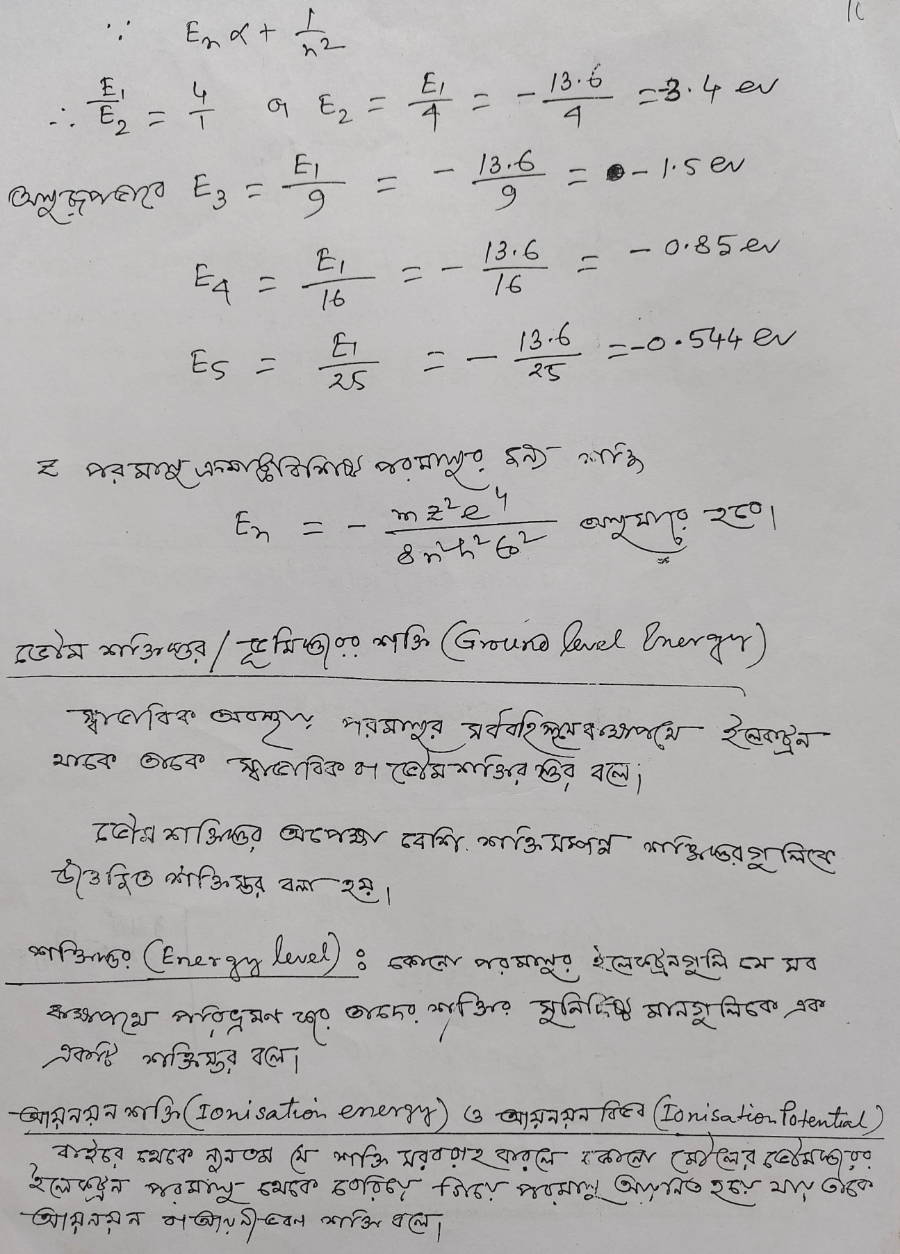 ∵ Eₙ α + 1/n²
∴ E₁/E₂ = 4/1 বা E₂ = E₁/4 = - 13.6/4 = -3.4 ev
অনুরূপভাবে E₃ = E₁/9 = - 13.6/9 = - 1.5 ev
E₄ = E₁/16 = - 13.6/16 = - 0.85 ev
E₅ = E₁/25 = - 13.6/25 = -0.544 ev
z পরমাণু ক্রমাঙ্কবিশিষ্ট পরমাণুর জন্য শক্তি
Eₙ = - mz²e⁴/8n²h²ϵ₀² অনুসারে হবে।
ভৌম শক্তিস্তর / ভূমিস্তরের শক্তি (Ground level Energy)
স্বাভাবিক অবস্থায় পরমাণুর সর্ববহিঃস্থ কক্ষপথে ইলেকট্রন
থাকে তাকে স্বাভাবিক বা ভৌমশক্তির স্তর বলে।
ভৌম শক্তিস্তর অপেক্ষা বেশি শক্তিসম্পন্ন শক্তিস্তরগুলিকে
উত্তেজিত শক্তিস্তর বলা হয়।
শক্তিস্তর (Energy level) : কোনো পরমাণুর ইলেকট্রনগুলি যে সব
কক্ষপথে পরিভ্রমণ করে তাদের শক্তির সুনির্দিষ্ট মানগুলিকে এক
একটি শক্তিস্তর বলে।
আয়নয়ন শক্তি (Ionisation energy) ও আয়নয়ন বিভব (Ionisation Potential)
বাইরে থেকে ন্যূনতম যে শক্তি সরবরাহ করলে কোনো মৌলের ভৌমস্তরের
ইলেকট্রন পরমাণু থেকে বেরিয়ে গিয়ে পরমাণু আয়নিত হয়ে যায় তাকে
আয়নয়ন বা আয়নীভবন শক্তি বলে।